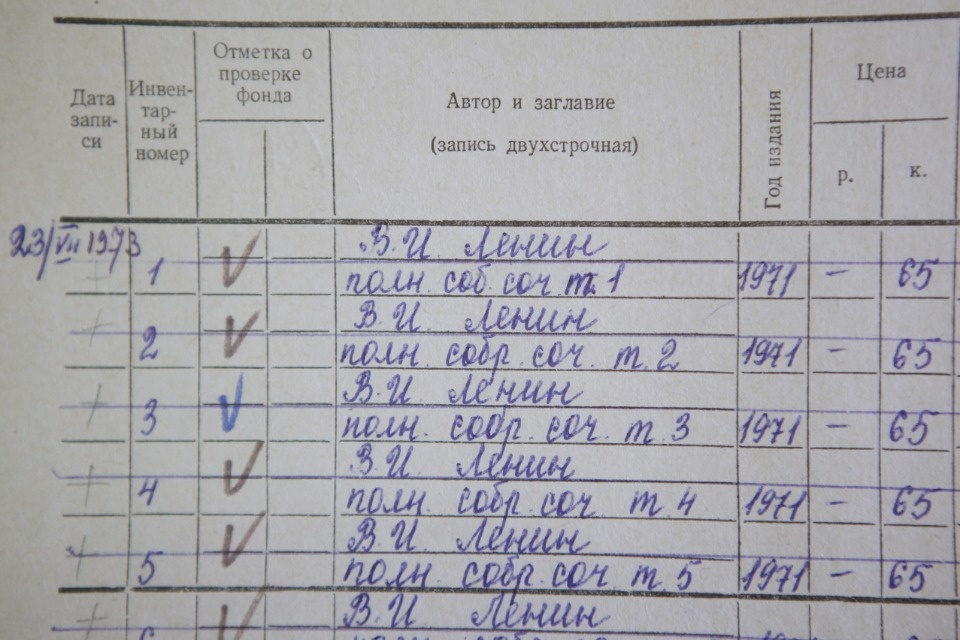 Дата
запи-
си
Инвен-
тар-
ный
номер
Отметка о
проверке
фонда
Автор и заглавие
(запись двухстрочная)
Год издания
Цена
р.
к.
23/VII 1973
В. И. Ленин
1 полн. соб. соч. т. 1 1971 – 65
В. И. Ленин
2 полн. собр. соч. т. 2 1971 – 65
В. И. Ленин
3 полн. собр. соч. т. 3 1971 – 65
В. И. Ленин
4 полн. собр. соч. т. 4 1971 – 65
В. И. Ленин
5 полн. собр. соч. т. 5 1971 – 65
В. И. Ленин